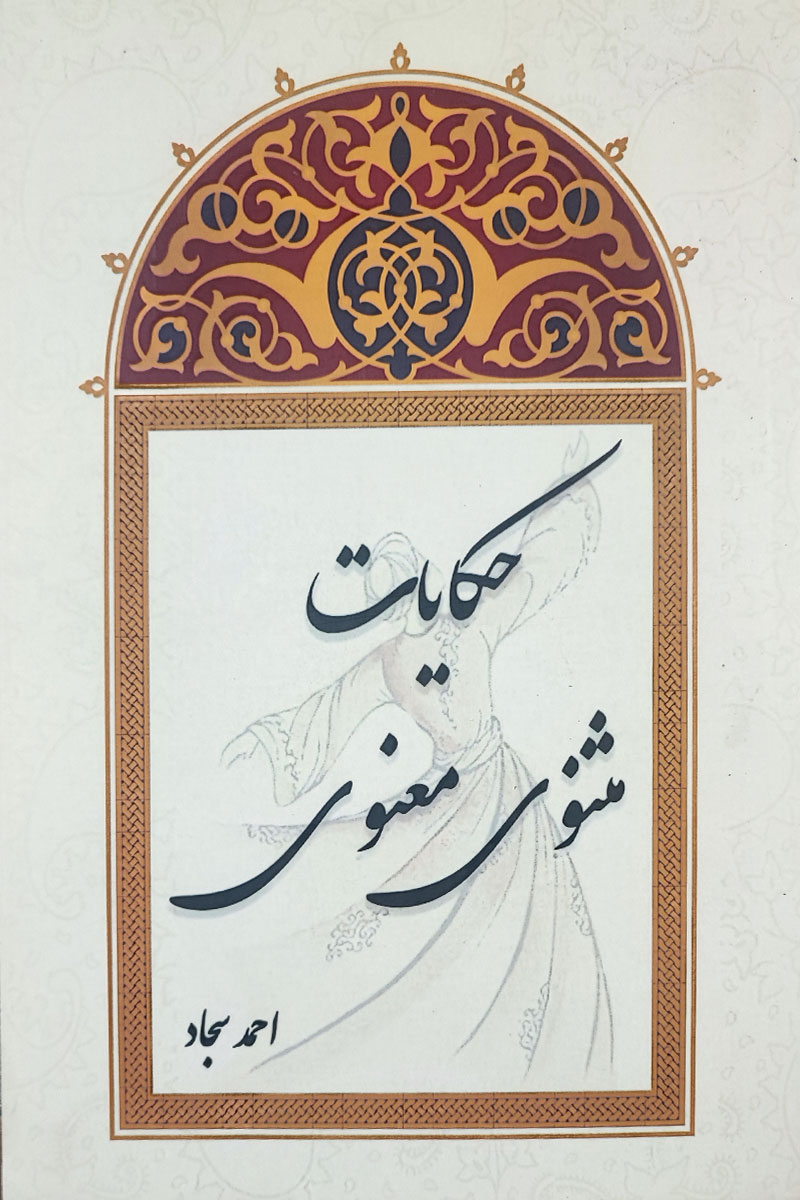 حکایات
مثنوی معنوی
احمد سجاد